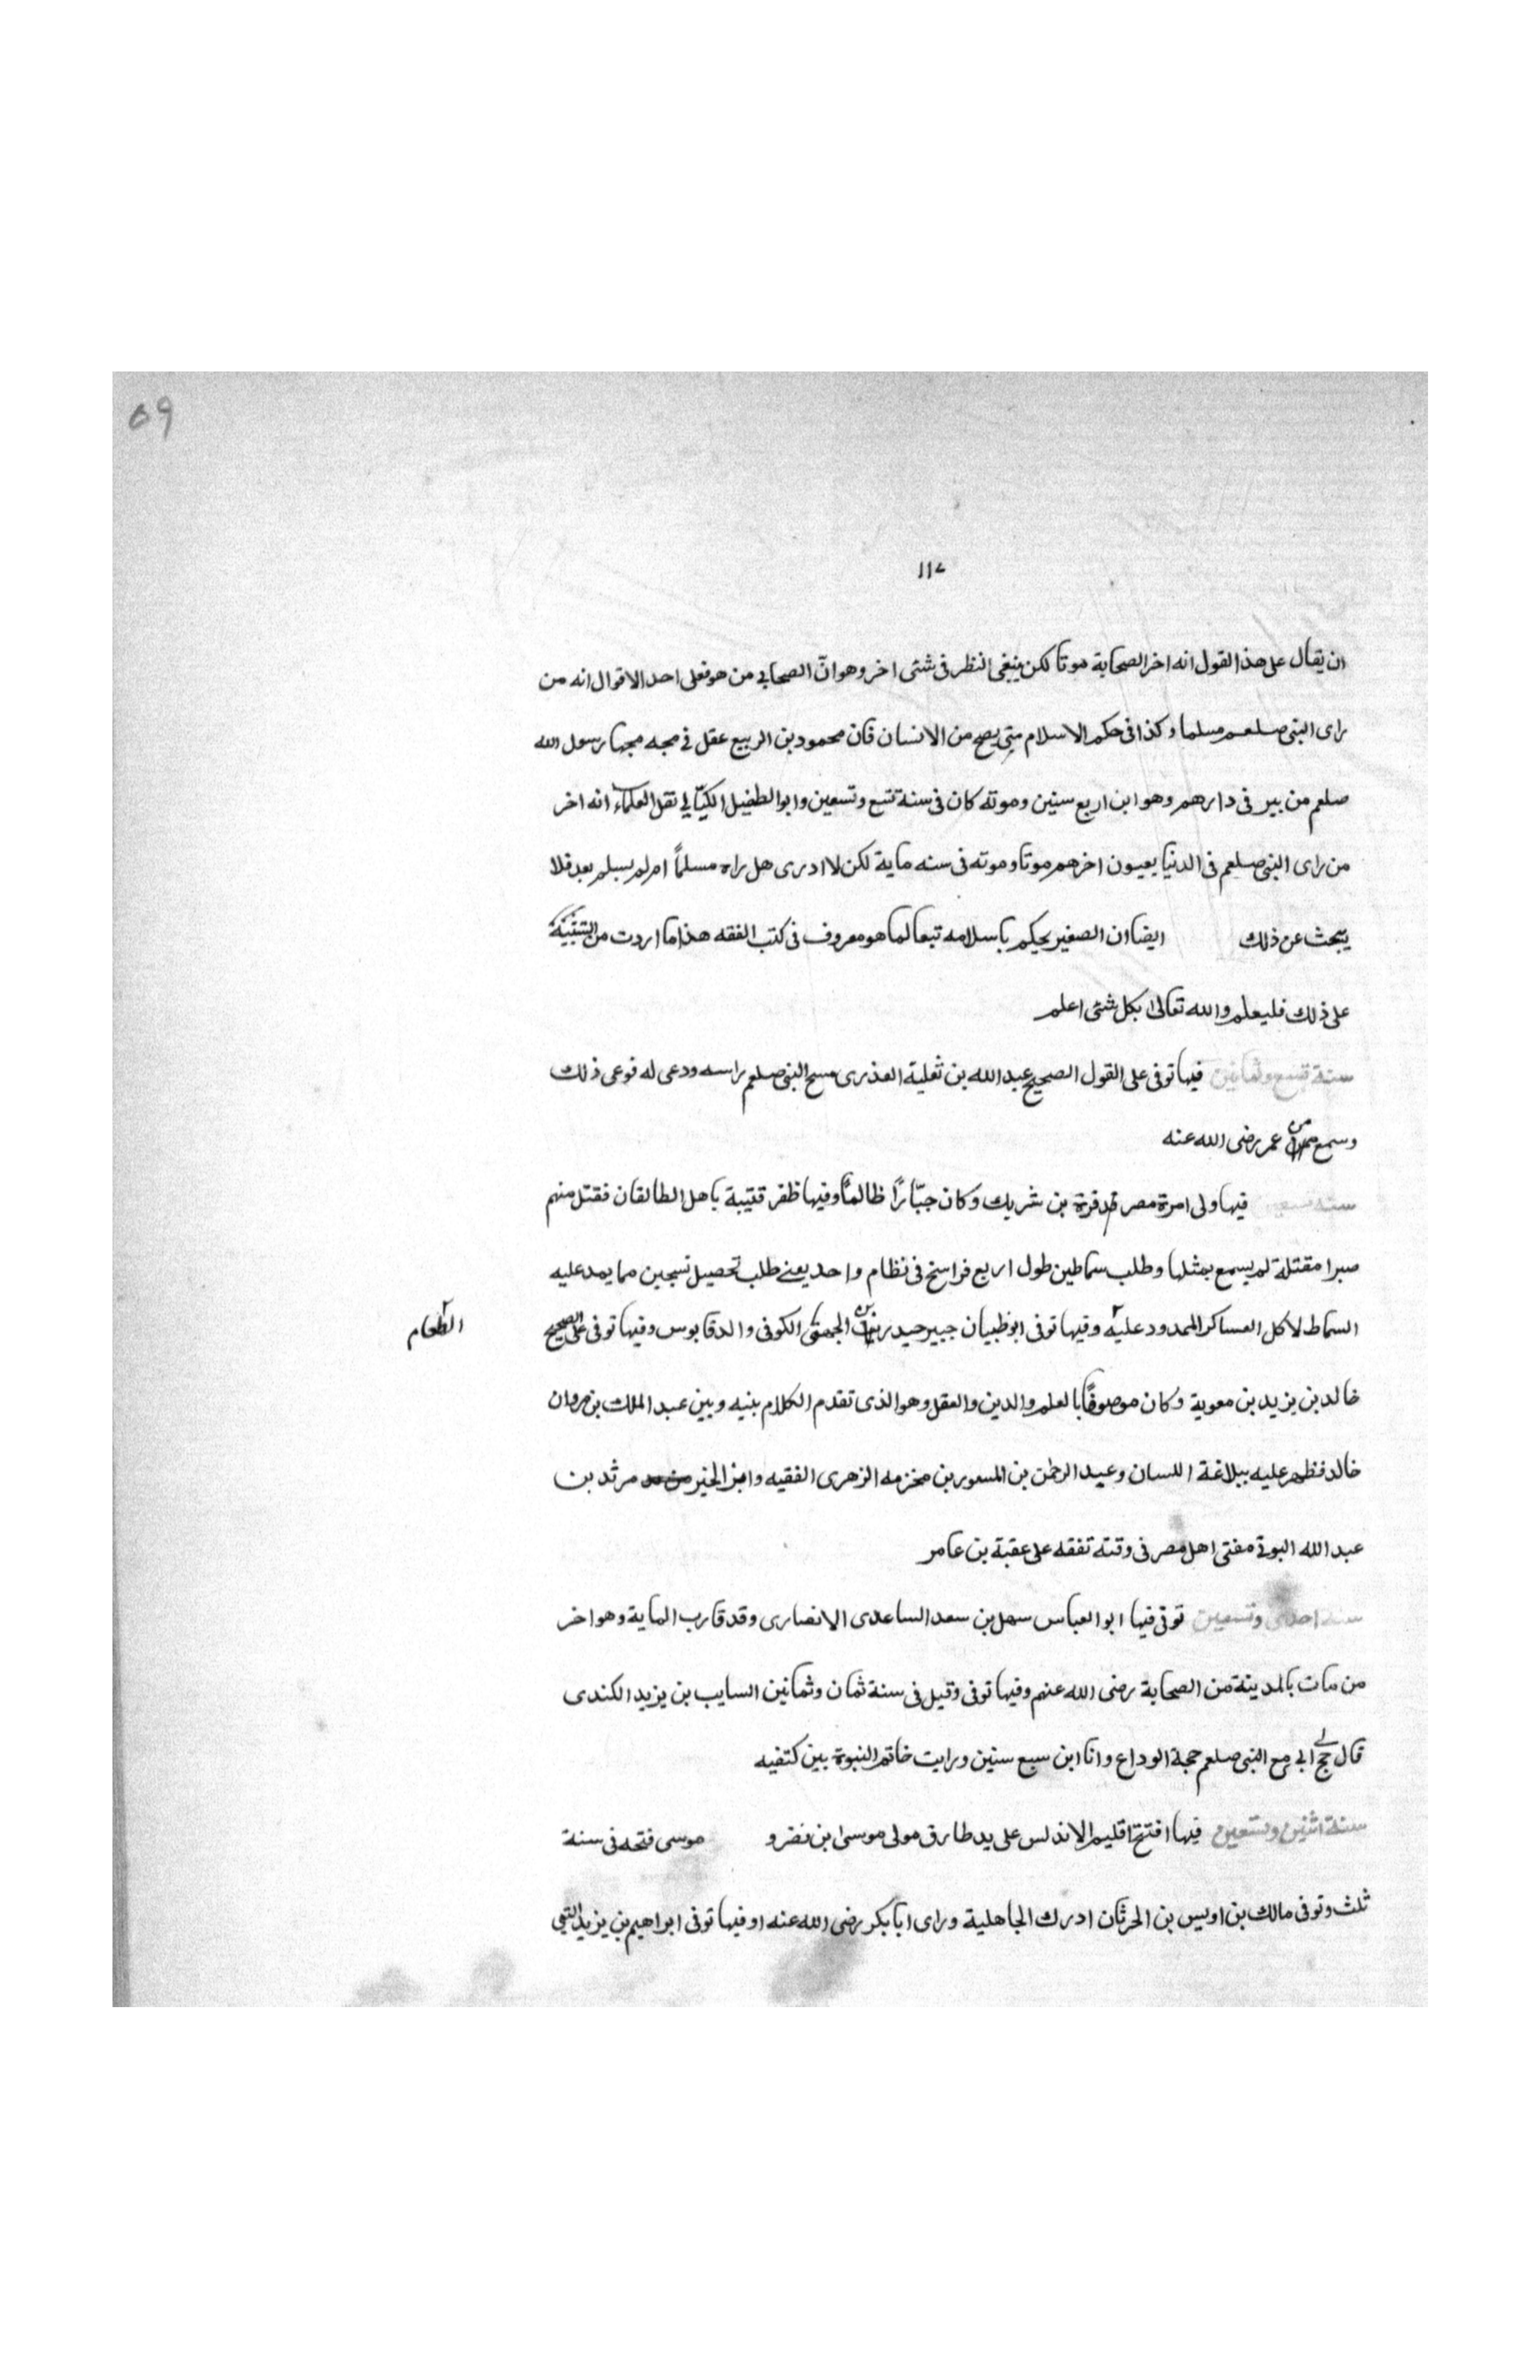 ٥٩
١١٧
ان يقال على هذا القول انه اخر الصحابة موتا لكن ينبغى النظر فى شئى اخر وهو انّ الصحابى من هو فعلى احد الاقوال انه من
راى النبى صلعم مسلما وكذا فى حكم الاسلام متى يصح من الانسان فان محمود بن الربيع عقل فى مجه مجها رسول الله
صلعم من بير فى دارهم وهو ابن اربع سنين وموته كان فى سنة تسع وتسعين وابو الطفيل نقل العلماء انه اخر
من راى النبى صلعم فى الدنيا يعيون اخرهم موتا وموته فى سنه ماية لكن لا ادرى هل راه مسلماً ام لم يسلم بعد فلا
يبحث عن ذلك ايضا ان الصغير يحكم باسلامه تبعا لما هو معروف فى كتب الفقه هذا ما اردت من
على ذلك فليعلم والله تعالى بكل شئى اعلم
سنة تسع وثمانين فيها توفى على القول الصحيح عبد الله بن ثعلبة العذرى مسح النبى صلعم راسه ودعى له فوعى ذلك
وسمع من عمر رضى الله عنه
سنه تسعين فيها ولى امرة مصر قرة بن شريك وكان جبّارًا ظالمًا وفيها ظفر قتيبة باهل الطالقان فقتل منهم
صبرا مقتلة لم يسمع بمثلها وطلب سماطين طول اربع فراسخ فى نظام واحد يعنى طلب تحصيل نسجين مما يمد عليه
السماط لاكل العساكر الممدود عليه وفيها توفى ابو ظبيان جبير الكوفى والدقابوس وفيها توفى على الصحيح
الطعام
خالد بن يزيد بن معوية وكان موصوفًا بالعلم والدين والعقل وهو الذى تقدم الكلام بنيه وبين عبد الملك بن مروان
خالد فظهر عليه ببلاغة اللسان وعبد الرحمٰن بن المسور بن مخزمه الزهرى الفقيه الخير مرثد بن
عبد الله مفتى اهل مصر فى وقته تفقه على عقبة بن عامر
سنة احدى وتسعين توفى فيها ابو العباس سهل بن سعد الساعدى الانصارى وقد قارب الماية وهو اخر
من مات بالمدينة من الصحابة رضى الله عنهم وفيها توفى وقيل فى سنة ثمان وثمانين السايب بن يزيد الكندى
قال حج لى ابى مع النبى صلعم حجة الوداع وانا ابن سبع سنين ورايت خاتم النبوة بين كتفيه
سنة اثنين وتسعين فيها افتتح اقليم الاندلس على يد طارق مولى موسى ابن نصر و موسى فتحه فى سنة
ثلث وتوفى مالك بن اويس بن الحرثان ادرك الجاهلية وراى ابا بكر رضى الله عنه او فيها توفى ابراهيم بن يزيد التيمى